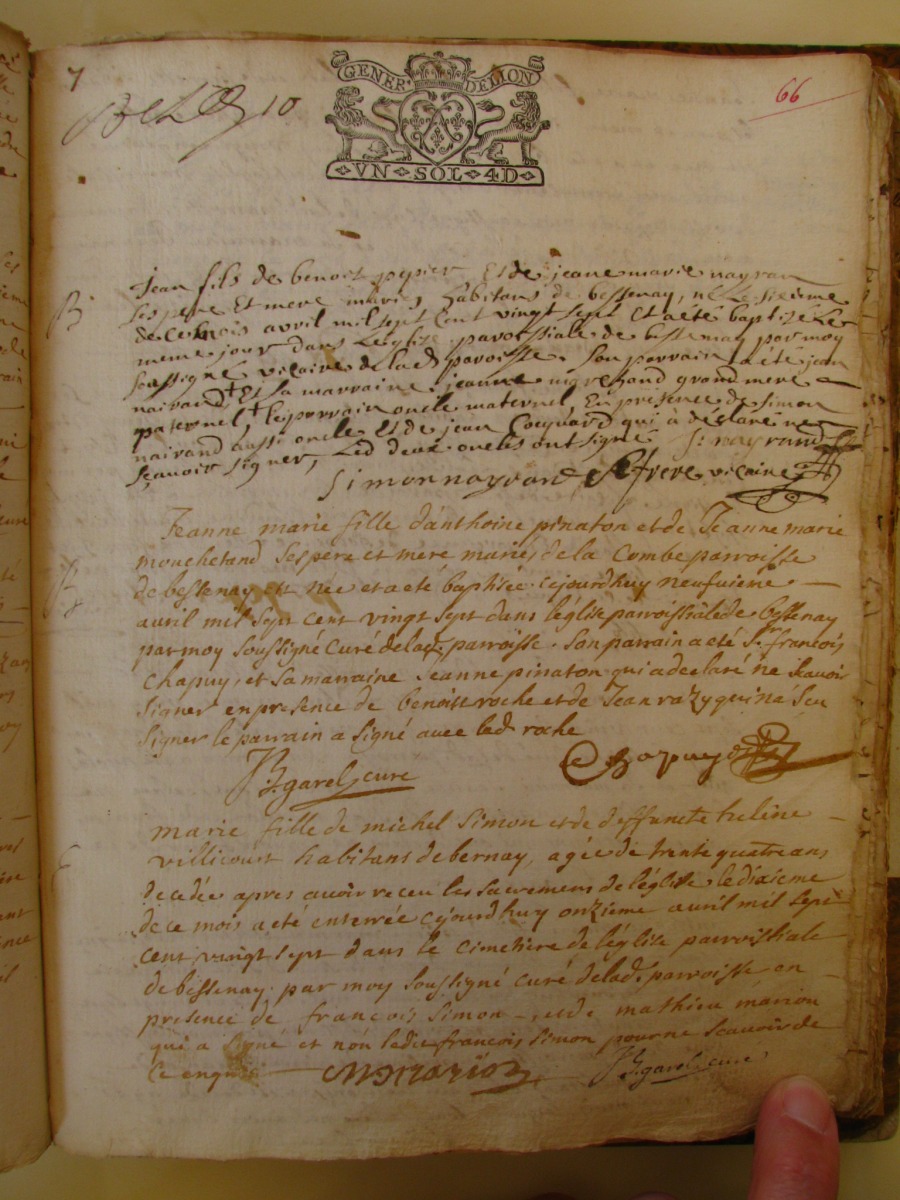 7
10
66
GENER DE LION
VN SOL 4D
B
Jean fils de benoit pepier Et de jeane marie nayran
ses pere Et mere mariés habitans de bessenay, né le
de ce mois avril mil sept Cent vingt sept Et a eté baptizé Le
meme jour dans L'eglise paroissiale de bessenay par moy
soussigné vicaire de lad. paroisse. Son parrain a été jean
nairand + Et sa marraine jeanne grand mere
paternel, + le parrain oncle maternel En presence de Simon
nairand aussi oncle Et de jean Coquard qui à declaré ne
sçavoir signer, Led deux oncles ont signe J: nayrand
Simon nayrand frere vicaire
B
Jeanne marie fille d'anthoine pinaton et de Jeanne marie
mouchetand ses pere et mere mariés de la Combe parroisse
de bessenay est née et a eté baptisée cejourdhuy neufuieme
avril mil sept cent vingt sept dans l'eglise parroissiale de bessenay
par moy soussigné curé de lad. parroisse. son parrain a eté Sr. francois
chapuy, et sa marraine Jeanne pinaton qui a declaré ne scavoir
signer en presence de benoist roche et de Jean razy qui n'a sceu
signer le parrain a signé avec led roche
Chapuy
garel cure
marie fille de michel Simon et de deffuncte helene
villicourt habitans de bernay, agée de trente quatre ans
decedée apres avoir receu les sacremens de l'église le dixieme
de ce mois a eté enterrée cejourdhuy onzieme avril mil sept
cent vingt sept dans le cimetiere de l'église parroissiale
de bessenay par moy soussigné curé de lad. parroisse en
presence de francois Simon et de mathieu marion
qui a signé et non ledit francois simon pour ne scavoir de
ce enquis M marion garel cure